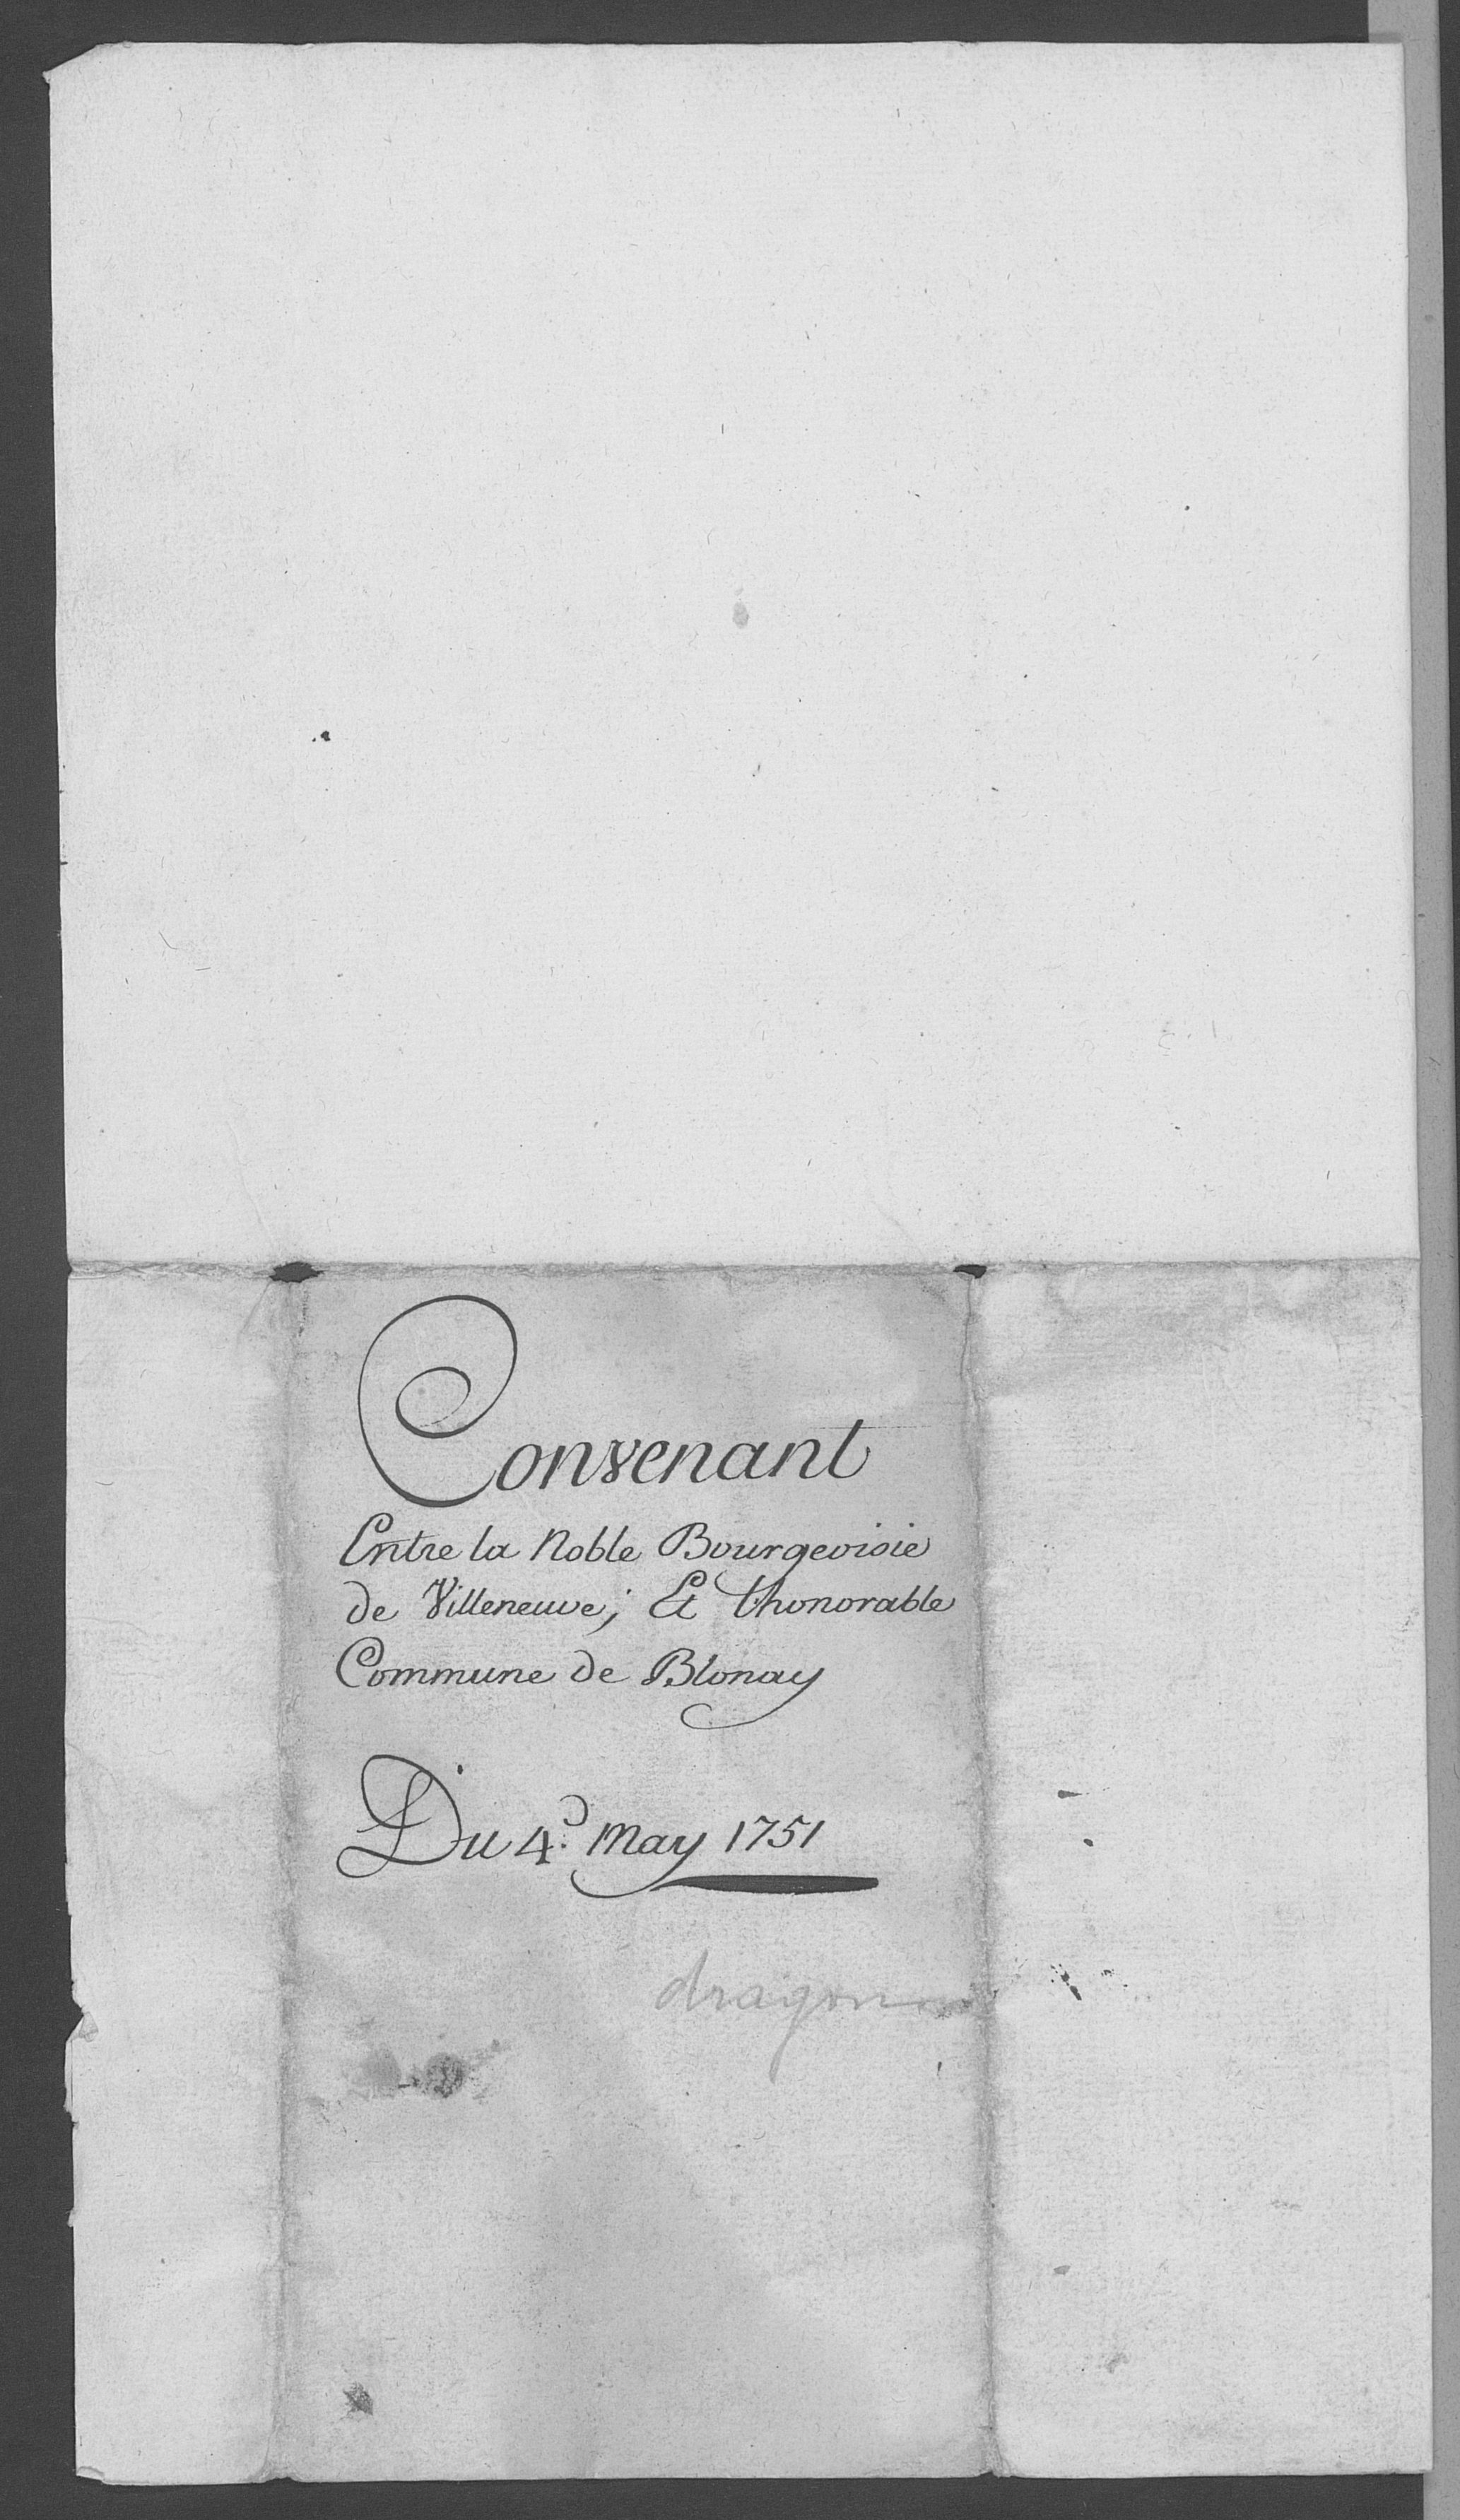 Convenant
Entre la Noble Bourgeoisie
de Villeneuve; Et lhonorable
Commune de Blonay
Du 4e. May 1751